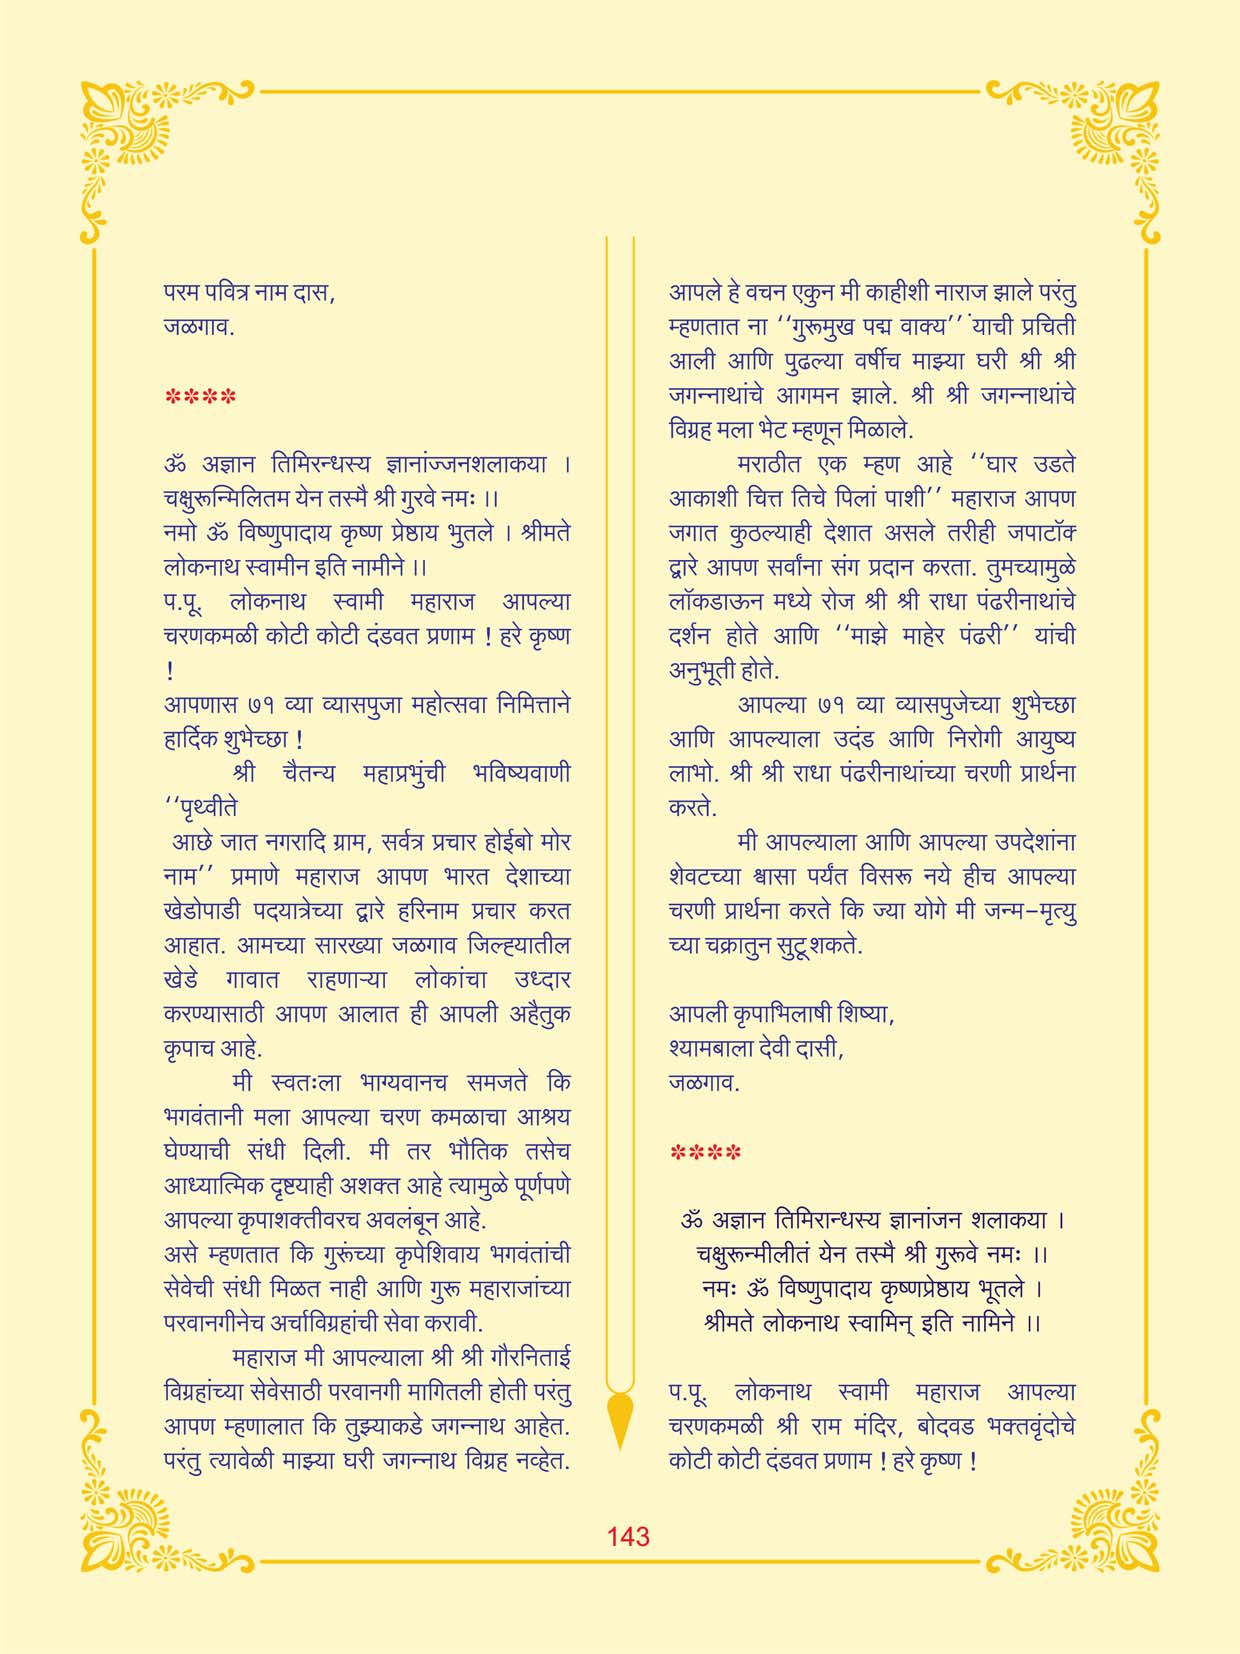 परम पवित्र नाम दास,
जळगाव.
****
ॐ अज्ञान तिमिरन्धस्य ज्ञानांज्जनशलाकया ।
चक्षुरून्मिलितम येन तस्मै श्री गुरवे नमः ।।
नमो ॐ विष्णुपादाय कृष्ण प्रेष्ठाय भुतले । श्रीमते
लोकनाथ स्वामीन इति नामीने ।।
प.पू. लोकनाथ स्वामी महाराज आपल्या
चरणकमळी कोटी कोटी दंडवत प्रणाम ! हरे कृष्ण
!
आपणास ७१ व्या व्यासपुजा महोत्सवा निमित्ताने
हार्दिक शुभेच्छा !
श्री चैतन्य महाप्रभुंची भविष्यवाणी
‘‘पृथ्वीते
आछे जात नगरादि ग्राम, सर्वत्र प्रचार होईबो मोर
नाम’’ प्रमाणे महाराज आपण भारत देशाच्या
खेडोपाडी पदयात्रेच्या द्वारे हरिनाम प्रचार करत
आहात. आमच्या सारख्या जळगाव जिल्ह्यातील
खेडे गावात राहणाऱ्या लोकांचा उध्दार
करण्यासाठी आपण आलात ही आपली अहैतुक
कृपाच आहे.
मी स्वतःला भाग्यवानच समजते कि
भगवंतानी मला आपल्या चरण कमळाचा आश्रय
घेण्याची संधी दिली. मी तर भौतिक तसेच
आध्यात्मिक दृष्टयाही अशक्त आहे त्यामुळे पूर्णपणे
आपल्या कृपाशक्तीवरच अवलंबून आहे.
असे म्हणतात कि गुरूंच्या कृपेशिवाय भगवंतांची
सेवेची संधी मिळत नाही आणि गुरू महाराजांच्या
परवानगीनेच अर्चाविग्रहांची सेवा करावी.
महाराज मी आपल्याला श्री श्री गौरनिताई
विग्रहांच्या सेवेसाठी परवानगी मागितली होती परंतु
आपण म्हणालात कि तुझ्याकडे जगन्नाथ आहेत.
परंतु त्यावेळी माझ्या घरी जगन्नाथ विग्रह नव्हेत.
आपले हे वचन एकुन मी काहीशी नाराज झाले परंतु
म्हणतात ना ‘‘गुरूमुख पद्म वाक्य’’ ंयाची प्रचिती
आली आणि पुढल्या वर्षीच माझ्या घरी श्री श्री
जगन्नाथांचे आगमन झाले. श्री श्री जगन्नाथांचे
विग्रह मला भेट म्हणून मिळाले.
मराठीत एक म्हण आहे ‘‘घार उडते
आकाशी चित्त तिचे पिलां पाशी’’ महाराज आपण
जगात कुठल्याही देशात असले तरीही जपाटॉक
द्वारे आपण सर्वांना संग प्रदान करता. तुमच्यामुळे
लॉकडाऊन मध्ये रोज श्री श्री राधा पंढरीनाथांचे
दर्शन होते आणि ‘‘माझे माहेर पंढरी’’ यांची
अनुभूती होते.
आपल्या ७१ व्या व्यासपुजेच्या शुभेच्छा
आणि आपल्याला उदंड आणि निरोगी आयुष्य
लाभो. श्री श्री राधा पंढरीनाथांच्या चरणी प्रार्थना
करते.
मी आपल्याला आणि आपल्या उपदेशांना
शेवटच्या श्वासा पर्यंत विसरू नये हीच आपल्या
चरणी प्रार्थना करते कि ज्या योगे मी जन्म–मृत्यु
च्या चक्रातुन सुटू शकते.
आपली कृपाभिलाषी शिष्या,
श्यामबाला देवी दासी,
जळगाव.
****
ॐ अज्ञान तिमिरान्धस्य ज्ञानांजन शलाकया ।
चक्षुरून्मीलीतं येन तस्मै श्री गुरूवे नमः ।।
नमः ॐ विष्णुपादाय कृष्णप्रेष्ठाय भूतले ।
श्रीमते लोकनाथ स्वामिन् इति नामिने ।।
प.पू. लोकनाथ स्वामी महाराज आपल्या
चरणकमळी श्री राम मंदिर, बोदवड भक्तवृंदोचे
कोटी कोटी दंडवत प्रणाम ! हरे कृष्ण !
143